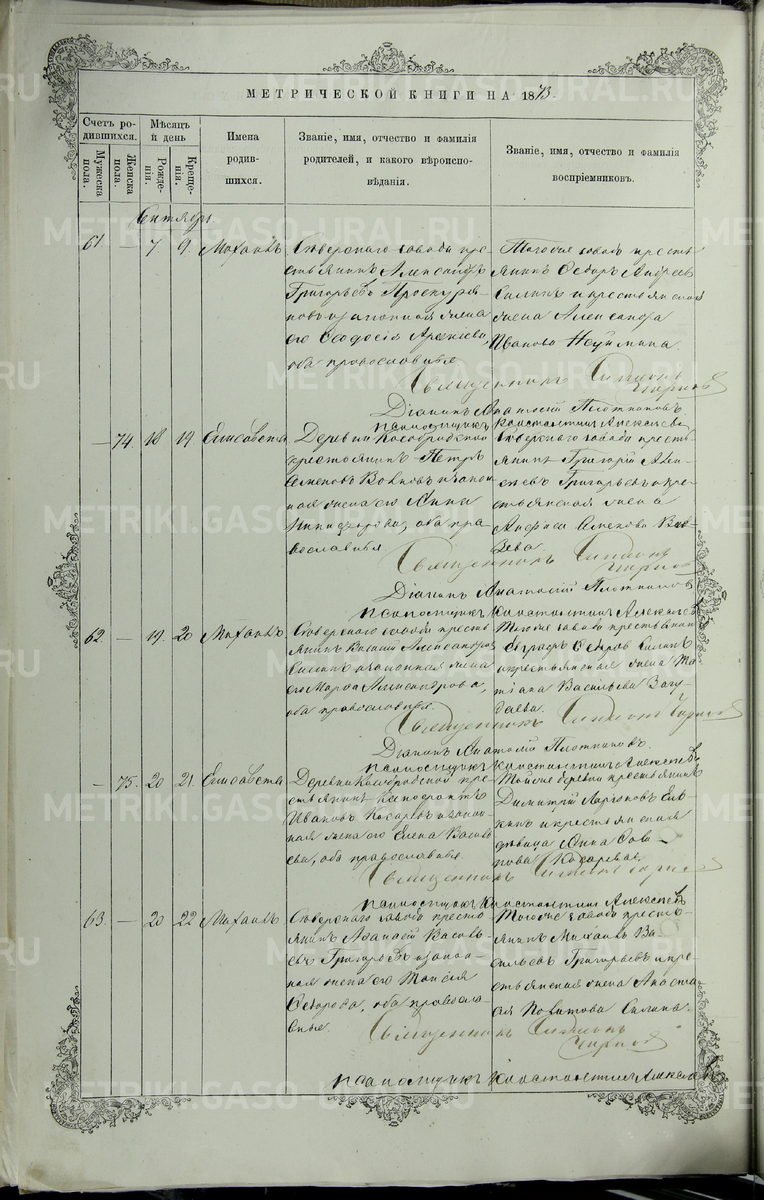 МЕТРИЧЕСКОЙ КНИГИ НА 1873.
Счетъ ро-
дившихся.
Мужеска
пола.
Женска
пола.
Мѣсяцъ
и день
Рожде-
нія.
Креще-
нія.
Имена
родив-
шихся.
Званіе, имя, отчество и фамилія
родителей, и какого вѣроиспо-
вѣданія.
Званіе, имя, отчество и фамилія
воспріемниковъ.
Сентябрь
61. — 7 9. Михаилъ
Сѣверскаго завода кре-
стьянинъ Александръ
Григорьевъ Проскуря-
ковъ и законная жена
его Ѳеодосія
оба православные
Тогоже завода кресть-
янинъ Ѳедоръ Андреевъ
Силинъ и крестьянская
жена Александра
Иванова Неуймина.
Священникъ Симеонъ
Діаконъ Анатолій Плотниковъ
Псаломщикъ Константинъ Алексѣевъ
— 74. 18 19 Елисавета
Деревни Кособродской
крестьянинъ Петръ
Семеновъ и закон-
ная жена его Анна
оба пра-
вославные
Сѣверскаго завода кресть-
янинъ Григорій Алек-
сѣевъ Григорьевъ и кре-
стьянская жена
Анфиса Семенова
Священникъ Симеонъ
Діаконъ Анатолій Плотниковъ
Псаломщикъ Константинъ Алексѣевъ
62. — 19. 20 Михаилъ
Сѣверскаго завода кресть-
янинъ Василій Александровъ
Силинъ и законная жена
его Марѳа Александрова,
оба православные.
Тогоже завода крестьянинъ
Ѳедоровъ Силинъ
и крестьянская жена Та-
тіана Васильева
Священникъ Симеонъ
Діаконъ Анатолій Плотниковъ.
Псаломщикъ Константинъ Алексѣевъ
— 75. 20 21. Елисавета
Деревни Кособродской кре-
стьянинъ Ксенофонтъ
Ивановъ Косаревъ и закон-
ная жена его Елена Василь-
ева, оба православные.
Тойже деревни крестьянинъ
Димитрій
и крестьянская
дѣвица Анна
Косарева.
Священникъ Симеонъ
Псаломщикъ Константинъ Алексѣевъ
63. — 20 22 Михаилъ
Сѣверскаго завода кресть-
янинъ Аѳанасій Василь-
евъ Григорьевъ и закон-
ная жена его Таисія
Ѳедорова, оба православ-
ные
Тогоже завода кресть-
янинъ Михаилъ Ва-
сильевъ Григорьевъ и кре-
стьянская жена Анаста-
сія Силина.
Священникъ Симеонъ
Псаломщикъ Константинъ Алексѣевъ
METRIKI.GASO-URAL.RU